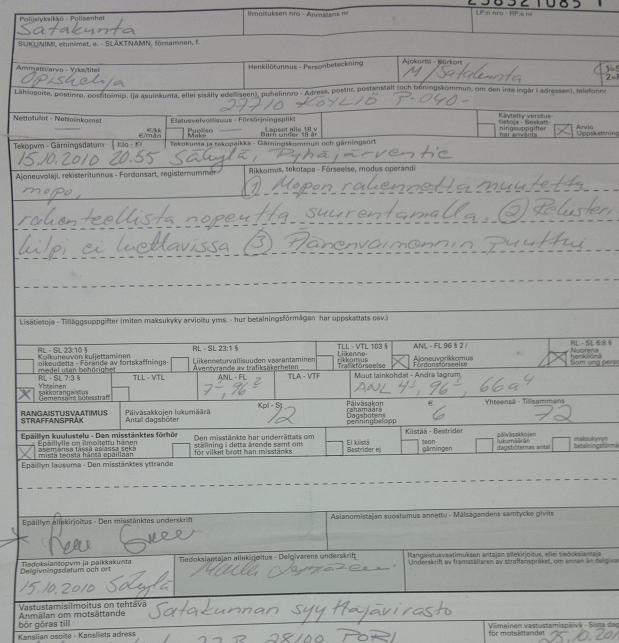 Poliisiyksikkö - Polisenhet
Ilmoituksen nro - Anmälans nr
LP:n nro - RP:s nr
Satakunta
SUKUNIMI, etunimet, e. - SLÄKTNAMN, förnamnen, f.
Ammatti/arvo - Yrke/titel
Henkilötunnus - Personbeteckning
Ajokortti - Körkort
Opiskelija
M/Satakunta
Lähiosoite, postinro, postitoimip. (ja asuinkunta, ellei sisälly edelliseen), puhelinnro - Adress, postnr, postanstalt (och boningskommun, om den inte ingår i adressen), telefonnr
27710 KÖYLIÖ P-040-
Nettotulot - Nettoinkomst
Elatusvelvollisuus - Försörjningsplikt
€/kk
€/mån
Puoliso
Make
Lapset alle 18 v
Barn under 18 år
Käytetty verotus-
tietoja - Beskatt-
ningsuppgifter
har använts
Arvio
Uppskattning
Tekopvm - Gärningsdatum
Klo - Kl
Tekokunta ja tekopaikka - Gärningskommun och gärningsort
15.10.2010 20.55 Säkylä, Pyhäjärventie
Ajoneuvolaji, rekisteritunnus - Fordonsart, registernummer
Rikkomus, tekotapa - Förseelse, modus operandi
mopo,
① Mopon rakennetta muutettu
rakenteellista nopeutta suurentamalla. ② Rekisteri
kilpi ei luettavissa ③ Äänenvaimennin puuttui
Lisätietoja - Tilläggsuppgifter (miten maksukyky arvioitu yms. - hur betalningsförmågan har uppskattats osv.)
RL - SL 23:10 §
Kulkuneuvon kuljettaminen
oikeudetta - Förande av fortskaffnings-
medel utan behörighet
RL - SL 23:1 §
Liikenneturvallisuuden vaarantaminen
Äventyrande av trafiksäkerheten
TLL - VTL 103 §
Liikenne-
rikkomus
Trafikförseelse
ANL - FL 96 § 2 /
Ajoneuvorikkomus
Fordonsförseelse
RL - SL 6:8 §
Nuorena
henkilönä
Som ung person
RL - SL 7:3 §
Yhteinen
sakkorangaistus
Gemensamt bötesstraff
TLL - VTL
ANL - FL
TLA - VTF
Muut lainkohdat - Andra lagrum
RANGAISTUSVAATIMUS
STRAFFANSPRÅK
Päiväsakkojen lukumäärä
Antal dagsböter
Kpl - St
12
Päiväsakon
rahamäärä
Dagsbotens
penningbelopp
€
6
Yhteensä - Tillsammans
72
Epäillyn kuulustelu - Den misstänktes förhör
Epäillylle on ilmoitettu hänen
asemansa tässä asiassa sekä
mistä teosta häntä epäillään
Den misstänkte har underrättats om
ställning i detta ärende samt om
för vilket brott han misstänks
Ei kiistä
Bestrider ej
Kiistää - Bestrider
teon
gärningen
päiväsakkojen
lukumäärän
dagsböternas antal
maksukyvyn
Epäillyn lausuma - Den misstänktes yttrande
Epäillyn allekirjoitus - Den misstänktes underskrift
Asianomistajan suostumus annettu - Målsägandens samtycke givits
Tiedoksiantopvm ja paikkakunta
Delgivningsdatum och ort
Tiedoksiantajan allekirjoitus - Delgivarens underskrift
Rangaistusvaatimuksen antajan allekirjoitus, ellei tiedoksiantaja
Underskrift av framställaren av straffanspråket, om annan än delgivaren
15.10.2010 Säkylä
Vastustamisilmoitus on tehtävä
Anmälan om motsättande
bör göras till
Satakunnan syyttäjävirasto
Kanslian osoite - Kansliets adress
Viimeinen vastustamispäivä - Sista dag
28100 PORI
25.10.201